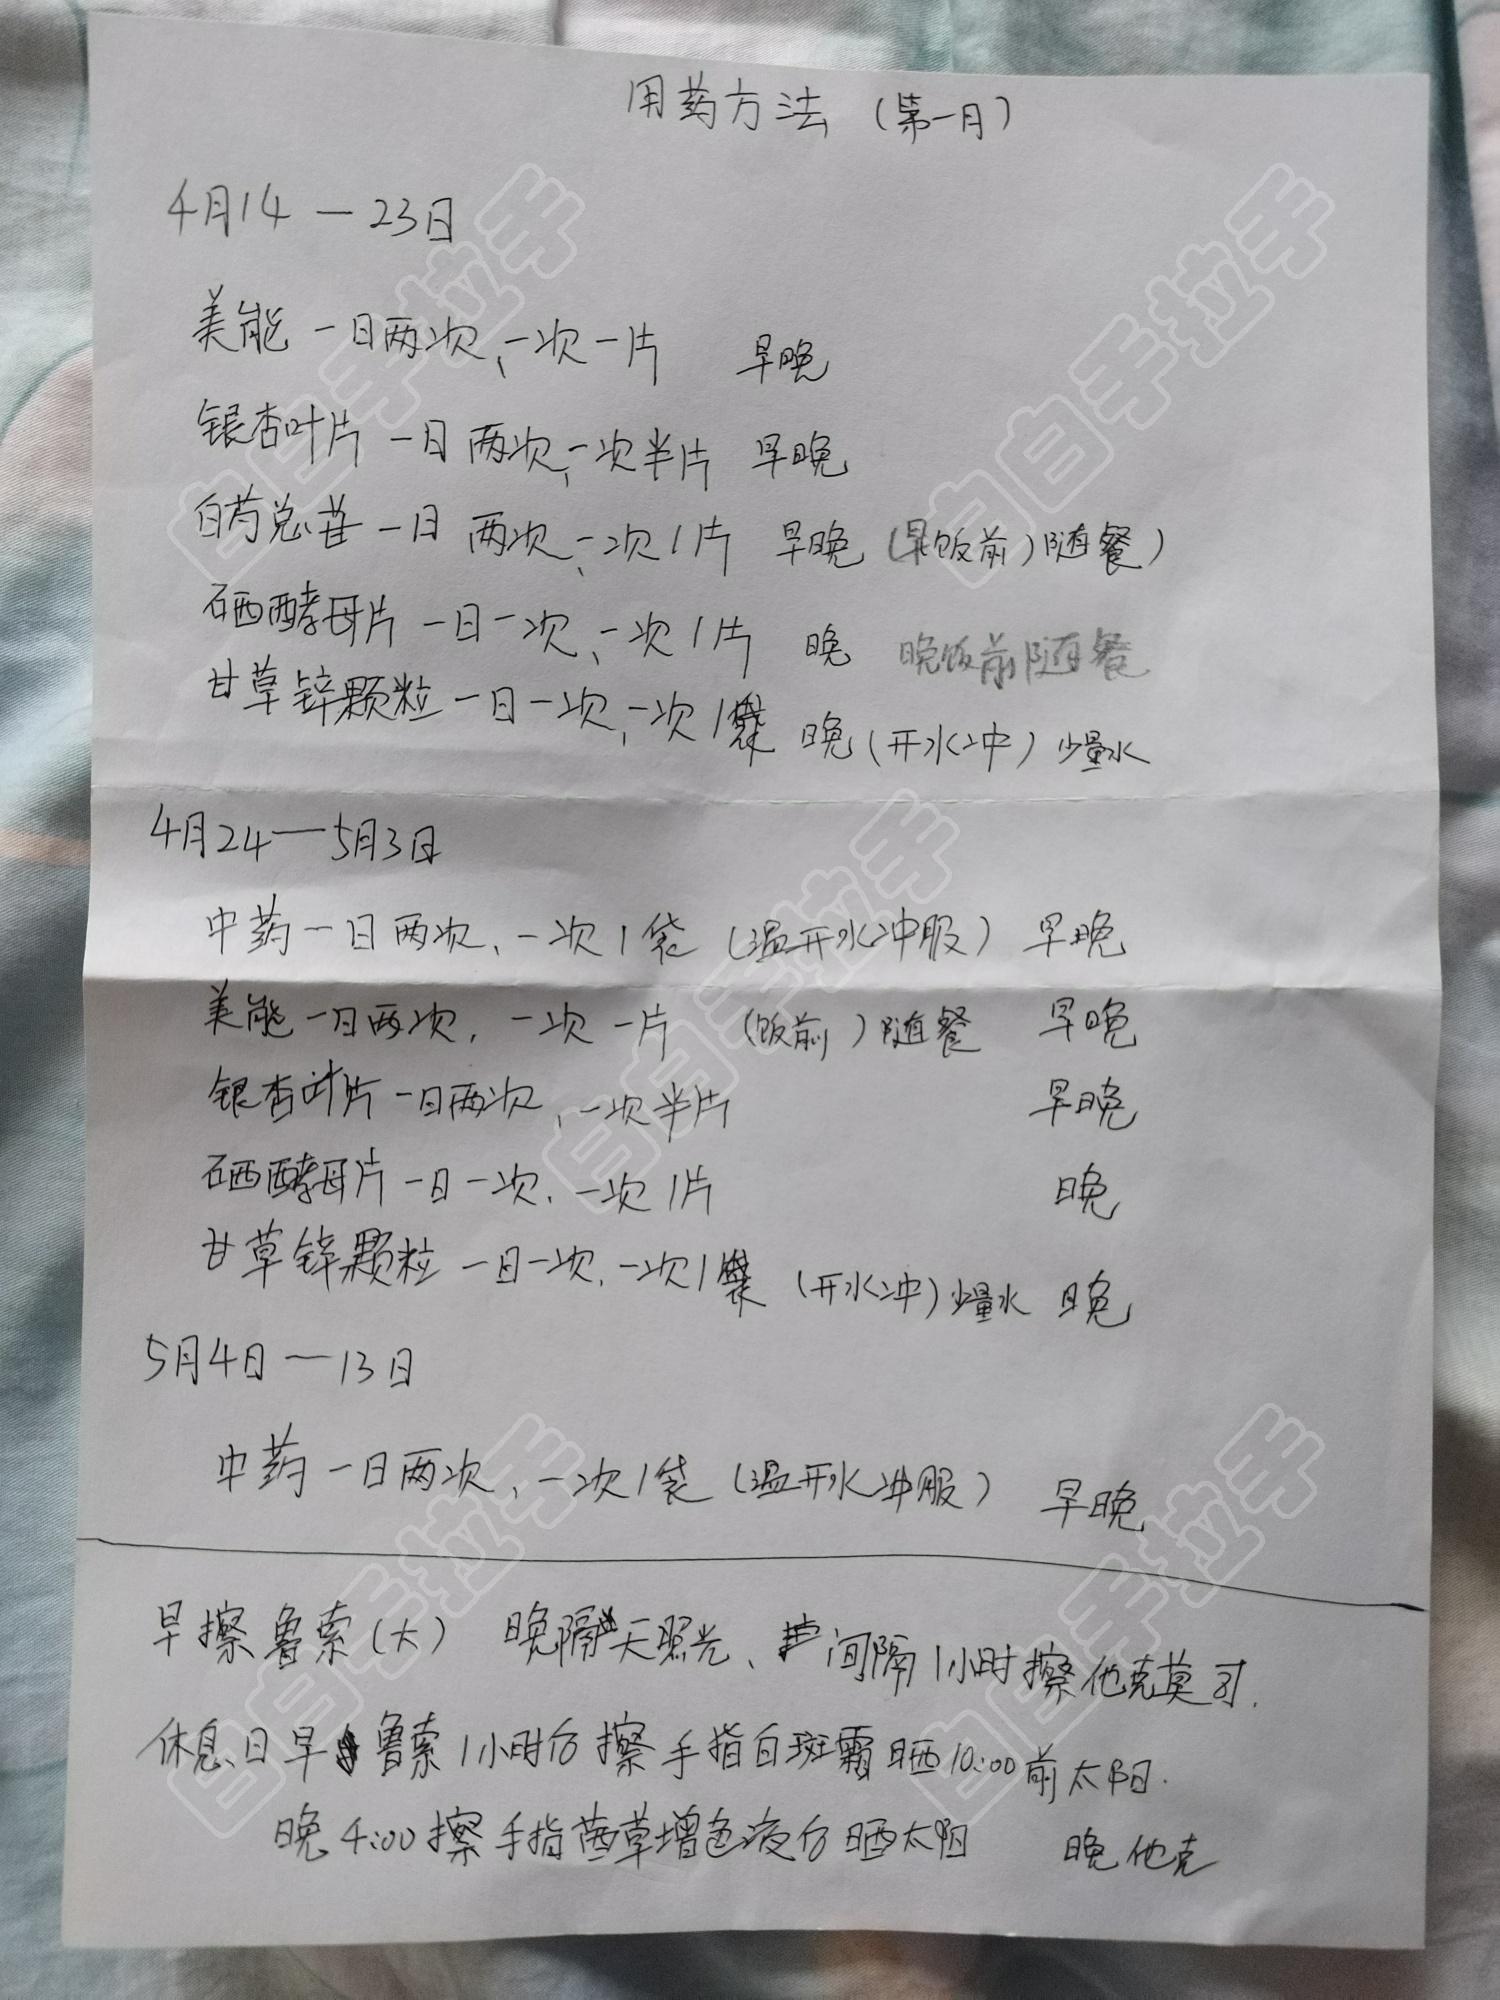 用药方法（第一月）
4月14 — 23日
美能 一日两次、一次一片 早晚
银杏叶片 一日两次、一次半片 早晚
白芍总苷 一日 两次、一次1片 早晚（早饭前）随餐）
硒酵母片 一日一次、一次1片 晚 晚饭前随餐
甘草锌颗粒 一日一次、一次1袋 晚（开水冲）少量水
4月24 — 5月3日
中药 一日两次、一次1袋（温开水冲服） 早晚
美能 一日两次，一次一片 （饭前）随餐 早晚
银杏叶片 一日两次、一次半片 早晚
硒酵母片 一日一次、一次1片 晚
甘草锌颗粒 一日一次、一次1袋（开水冲）少量水 晚
5月4日 — 13日
中药 一日两次、一次1袋（温开水冲服） 早晚
早擦鲁索（大） 晚隔天照光、间隔1小时擦他克莫司.
休息日早鲁索1小时后擦手指白斑霜晒10:00前太阳.
晚4:00擦手指茜草增色液后晒太阳 晚他克
自白手拉手
自白手拉手
自白手拉手
自白手拉手
自白手拉手